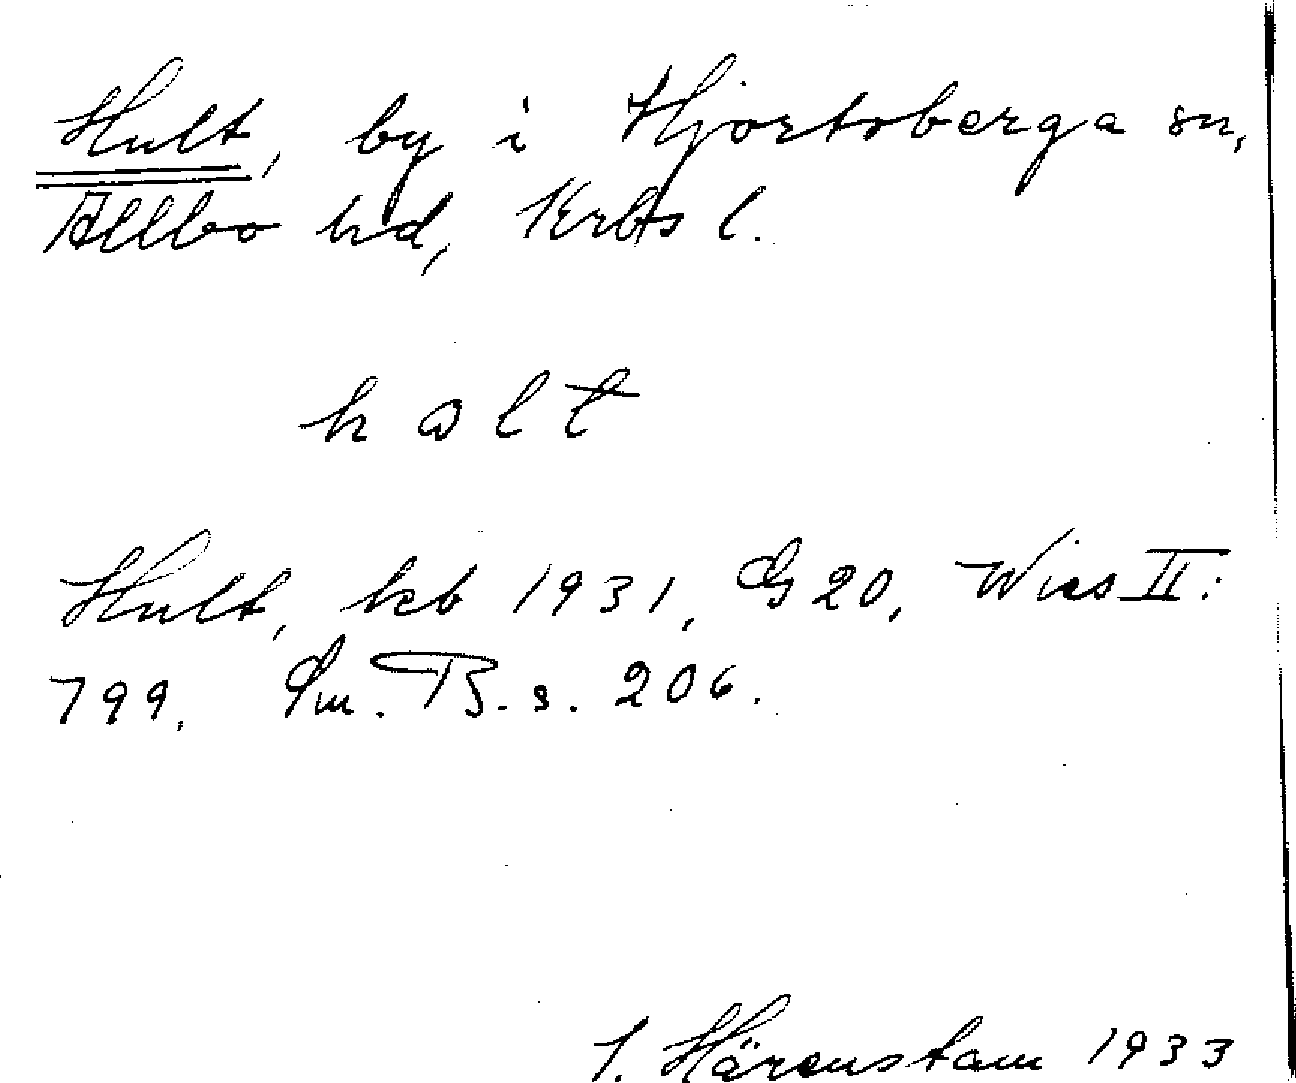 Hult, by i Hjortsberga sn,
Allbo hd, Krbs l.
hɷlt
Hult, kb 1931, G 20, Wies II:
799. Sm. B. s. 206.
I. Härenstam 1933